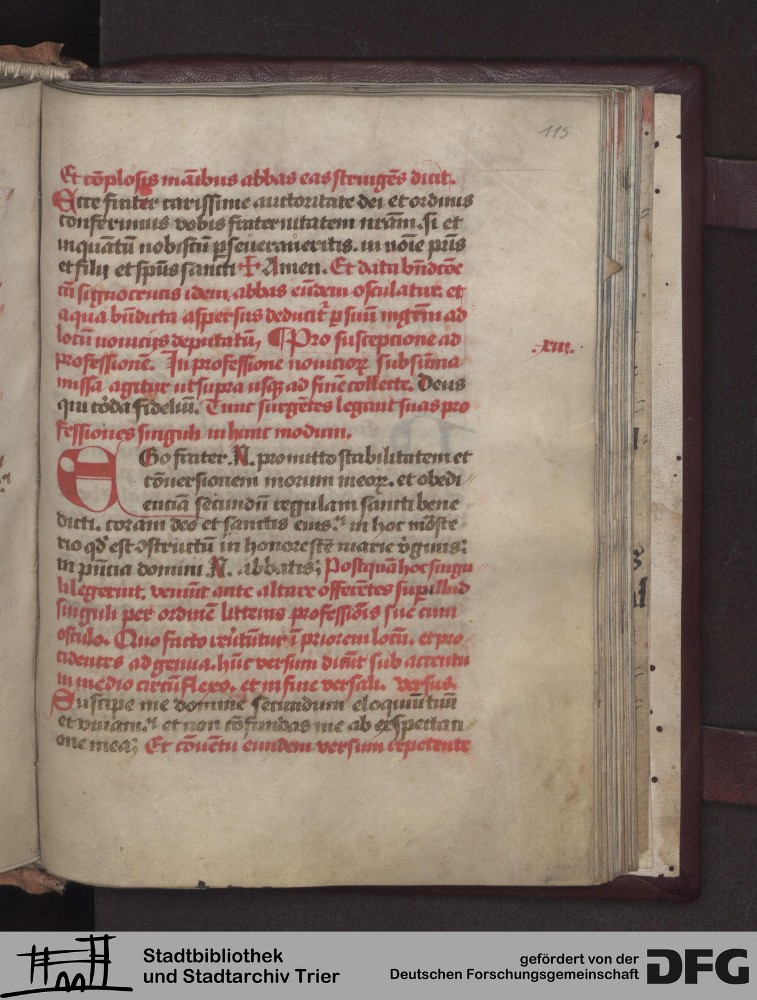 115
Et cōplosis māibus abbas eas stringēs dicit.
Ecce frater carissime auctoritate dei et ordinis
conferimus vobis fraternitatem nrām. si et
inquātū nobiscū ꝑseueraueritis. in noīe pr̄is
et filij et spūs sancti ✠ Amen. Et data bn̄dictōe
cū signo crucis idem abbas eūdem osculatur. et
aqua bn̄dicta aspersus deducit᷑ ꝑ suū mgr̄m ad
locū nouicijs deputatū, ¶ Pro susceptione ad
professionē. In professione nouicioꝝ sub sūma
.xiii.
missa agitur ut supra usqꝫ ad finē collecte. Deus
qui cōda fidelium. Tunc surgētes legant suas pro
fessiones singuli in hunc modum.
EGo frater .N. promitto stabilitatem et
cōuersionem morum meoꝝ. et obedi
enciā secundū regulam sancti bene
dicti. coram deo et sanctis eius. in hoc mōste
rio qd̓ est ↄstructū in honore scē marie v̓ginis:
in pn̄cia domini .N. abbatis; Postquā hoc singu
li legerint. veniūt ante altare offerētes suꝑ illud
singuli per ordinē litteras professiōis sue cum
osculo. Quo facto reūtūtur ī priorem locū. et pro
cidentes ad genua. hūc versum dicūt sub accentu
in medio circūflexo. et in fine versali. Versus.
Suscipe me domine secundum eloquiū tuū
et viuam. et non cōfundas me ab exspectati
one mea; Et cōuētu eundem versum repetente
Stadtbibliothek
und Stadtarchiv Trier
gefördert von der
Deutschen Forschungsgemeinschaft
DFG